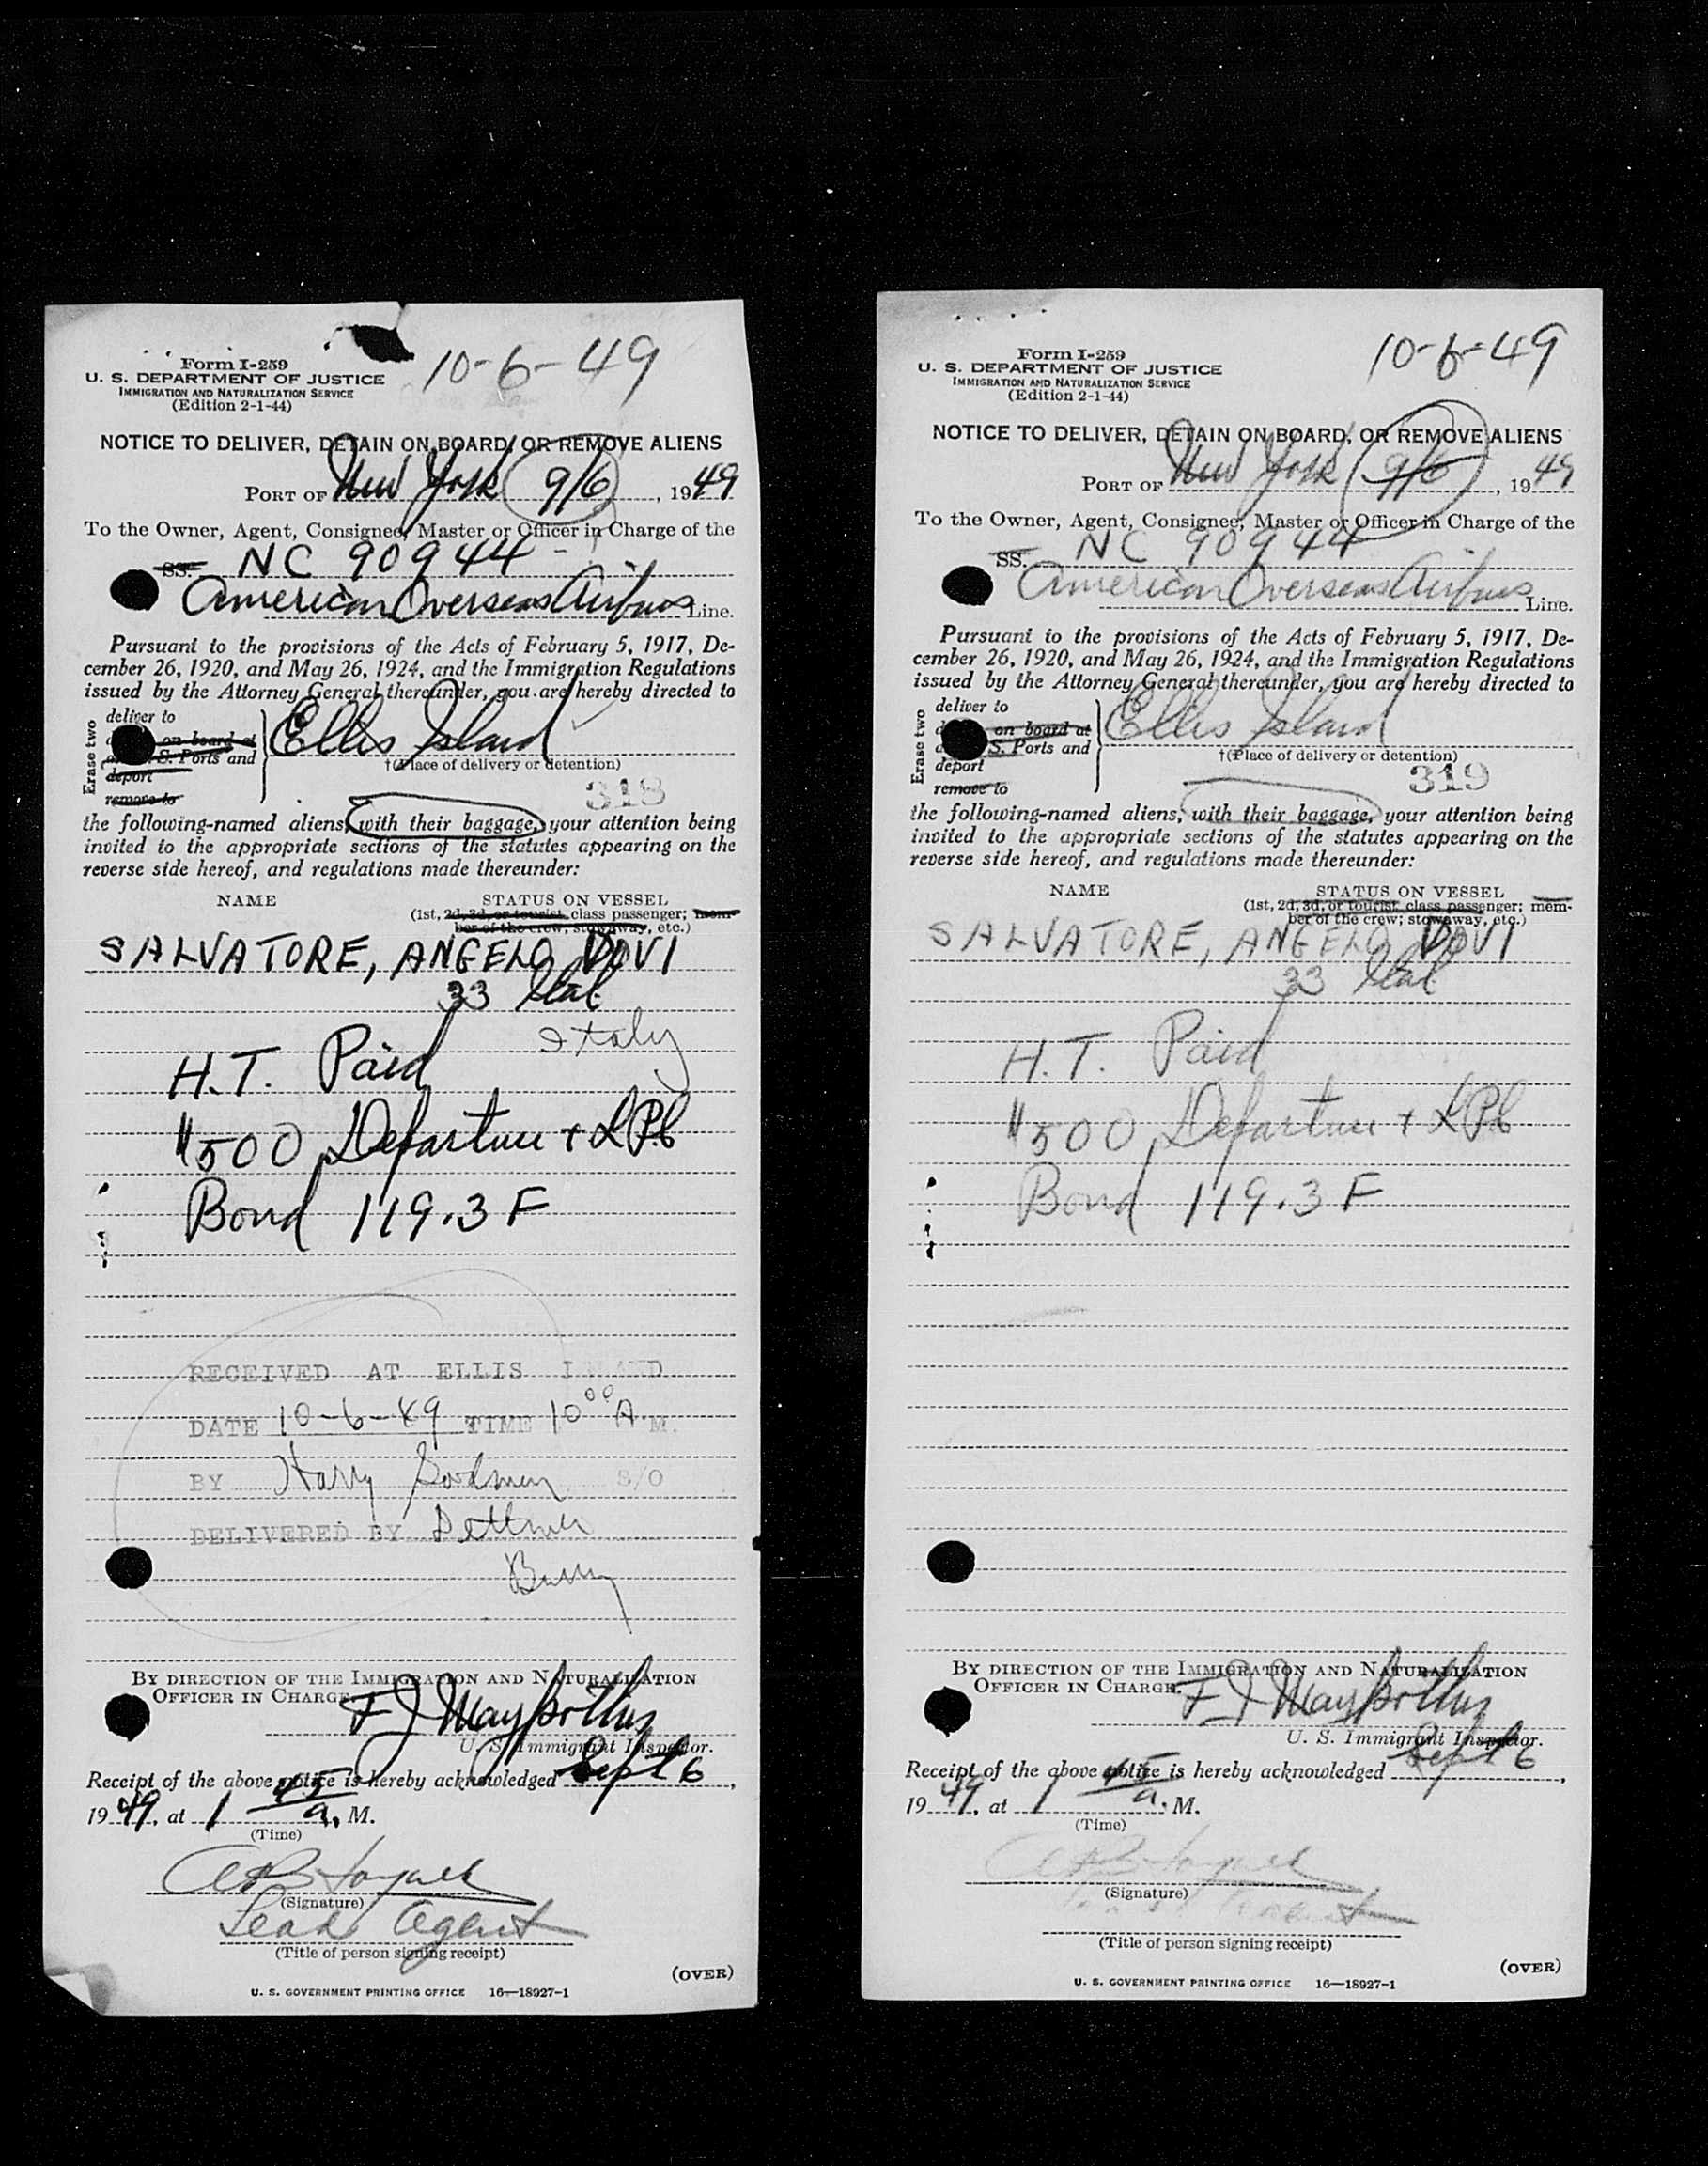 Form I-259
U. S. DEPARTMENT OF JUSTICE
IMMIGRATION AND NATURALIZATION SERVICE
(Edition 2-1-44)
10-6-49
NOTICE TO DELIVER, DETAIN ON BOARD, OR REMOVE ALIENS
PORT OF New York 9/6, 1949
To the Owner, Agent, Consignee, Master or Officer in Charge of the
SS. NC 90944
American Overseas Airlines Line.
Pursuant to the provisions of the Acts of February 5, 1917, De-
cember 26, 1920, and May 26, 1924, and the Immigration Regulations
issued by the Attorney General thereunder, you are hereby directed to
Erase two
deliver to
on board at
S. Ports and
deport
remove to
Ellis Island
†(Place of delivery or detention)
318
the following-named aliens, with their baggage, your attention being
invited to the appropriate sections of the statutes appearing on the
reverse side hereof, and regulations made thereunder:
NAME STATUS ON VESSEL
(1st, 2d, 3d, or tourist class passenger; mem-
ber of the crew; stowaway, etc.)
SALVATORE, ANGELO DOVI
33 Ital
Italy
H.T. Paid
$500 Departure + L.P.C.
Bond 119.3 F
RECEIVED AT ELLIS ISLAND
DATE 10-6-49 TIME 10 00 A. M.
BY Harry Goodman S/O
DELIVERED BY
BY DIRECTION OF THE IMMIGRATION AND NATURALIZATION
OFFICER IN CHARGE.
F J
U. S. Immigrant Inspector.
Receipt of the above notice is hereby acknowledged Sept 6,
1949, at 1 45 a. M.
(Time)
(Signature)
Agent
(Title of person signing receipt)
(OVER)
U. S. GOVERNMENT PRINTING OFFICE 16—18927-1
Form I-259
U. S. DEPARTMENT OF JUSTICE
IMMIGRATION AND NATURALIZATION SERVICE
(Edition 2-1-44)
10-6-49
NOTICE TO DELIVER, DETAIN ON BOARD, OR REMOVE ALIENS
PORT OF New York 9/6, 1949
To the Owner, Agent, Consignee, Master or Officer in Charge of the
SS. NC 90944
American Overseas Airlines Line.
Pursuant to the provisions of the Acts of February 5, 1917, De-
cember 26, 1920, and May 26, 1924, and the Immigration Regulations
issued by the Attorney General thereunder, you are hereby directed to
Erase two
deliver to
on board at
S. Ports and
deport
remove to
Ellis Island
†(Place of delivery or detention)
319
the following-named aliens, with their baggage, your attention being
invited to the appropriate sections of the statutes appearing on the
reverse side hereof, and regulations made thereunder:
NAME STATUS ON VESSEL
(1st, 2d, 3d, or tourist class passenger; mem-
ber of the crew; stowaway, etc.)
SALVATORE, ANGELO DOVI
33 Ital
H.T. Paid
$500 Departure + L.P.C.
Bond 119.3 F
BY DIRECTION OF THE IMMIGRATION AND NATURALIZATION
OFFICER IN CHARGE.
F J
U. S. Immigrant Inspector.
Receipt of the above notice is hereby acknowledged Sept 6,
1949, at 1 45 a. M.
(Time)
(Signature)
(Title of person signing receipt)
(OVER)
U. S. GOVERNMENT PRINTING OFFICE 16—18927-1